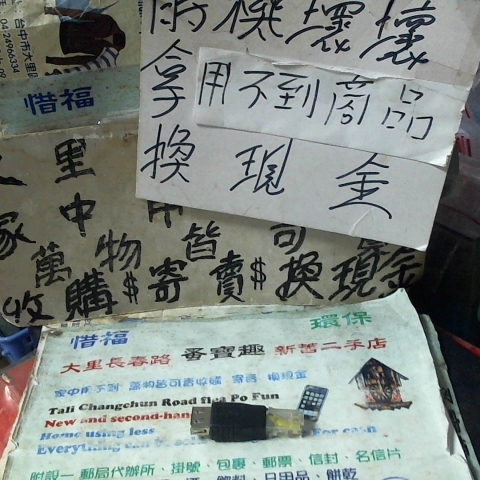 台中市大里區
0424966334
惜福
雨機壞壞
拿用不到商品
換現金
里
家中用皆可
萬物
收購$寄賣$換現金
惜福 環保
大里長春路 番寶趣 新舊二手店
家中用不到 萬物皆可 收購 寄賣 換現金
Tali Changchun Road Po Fun
New and second-han
Home using less
Everything can b
附設一郵局代辦所、掛號、包裹、郵票、信封、名信片
飲料、日用品、餅乾